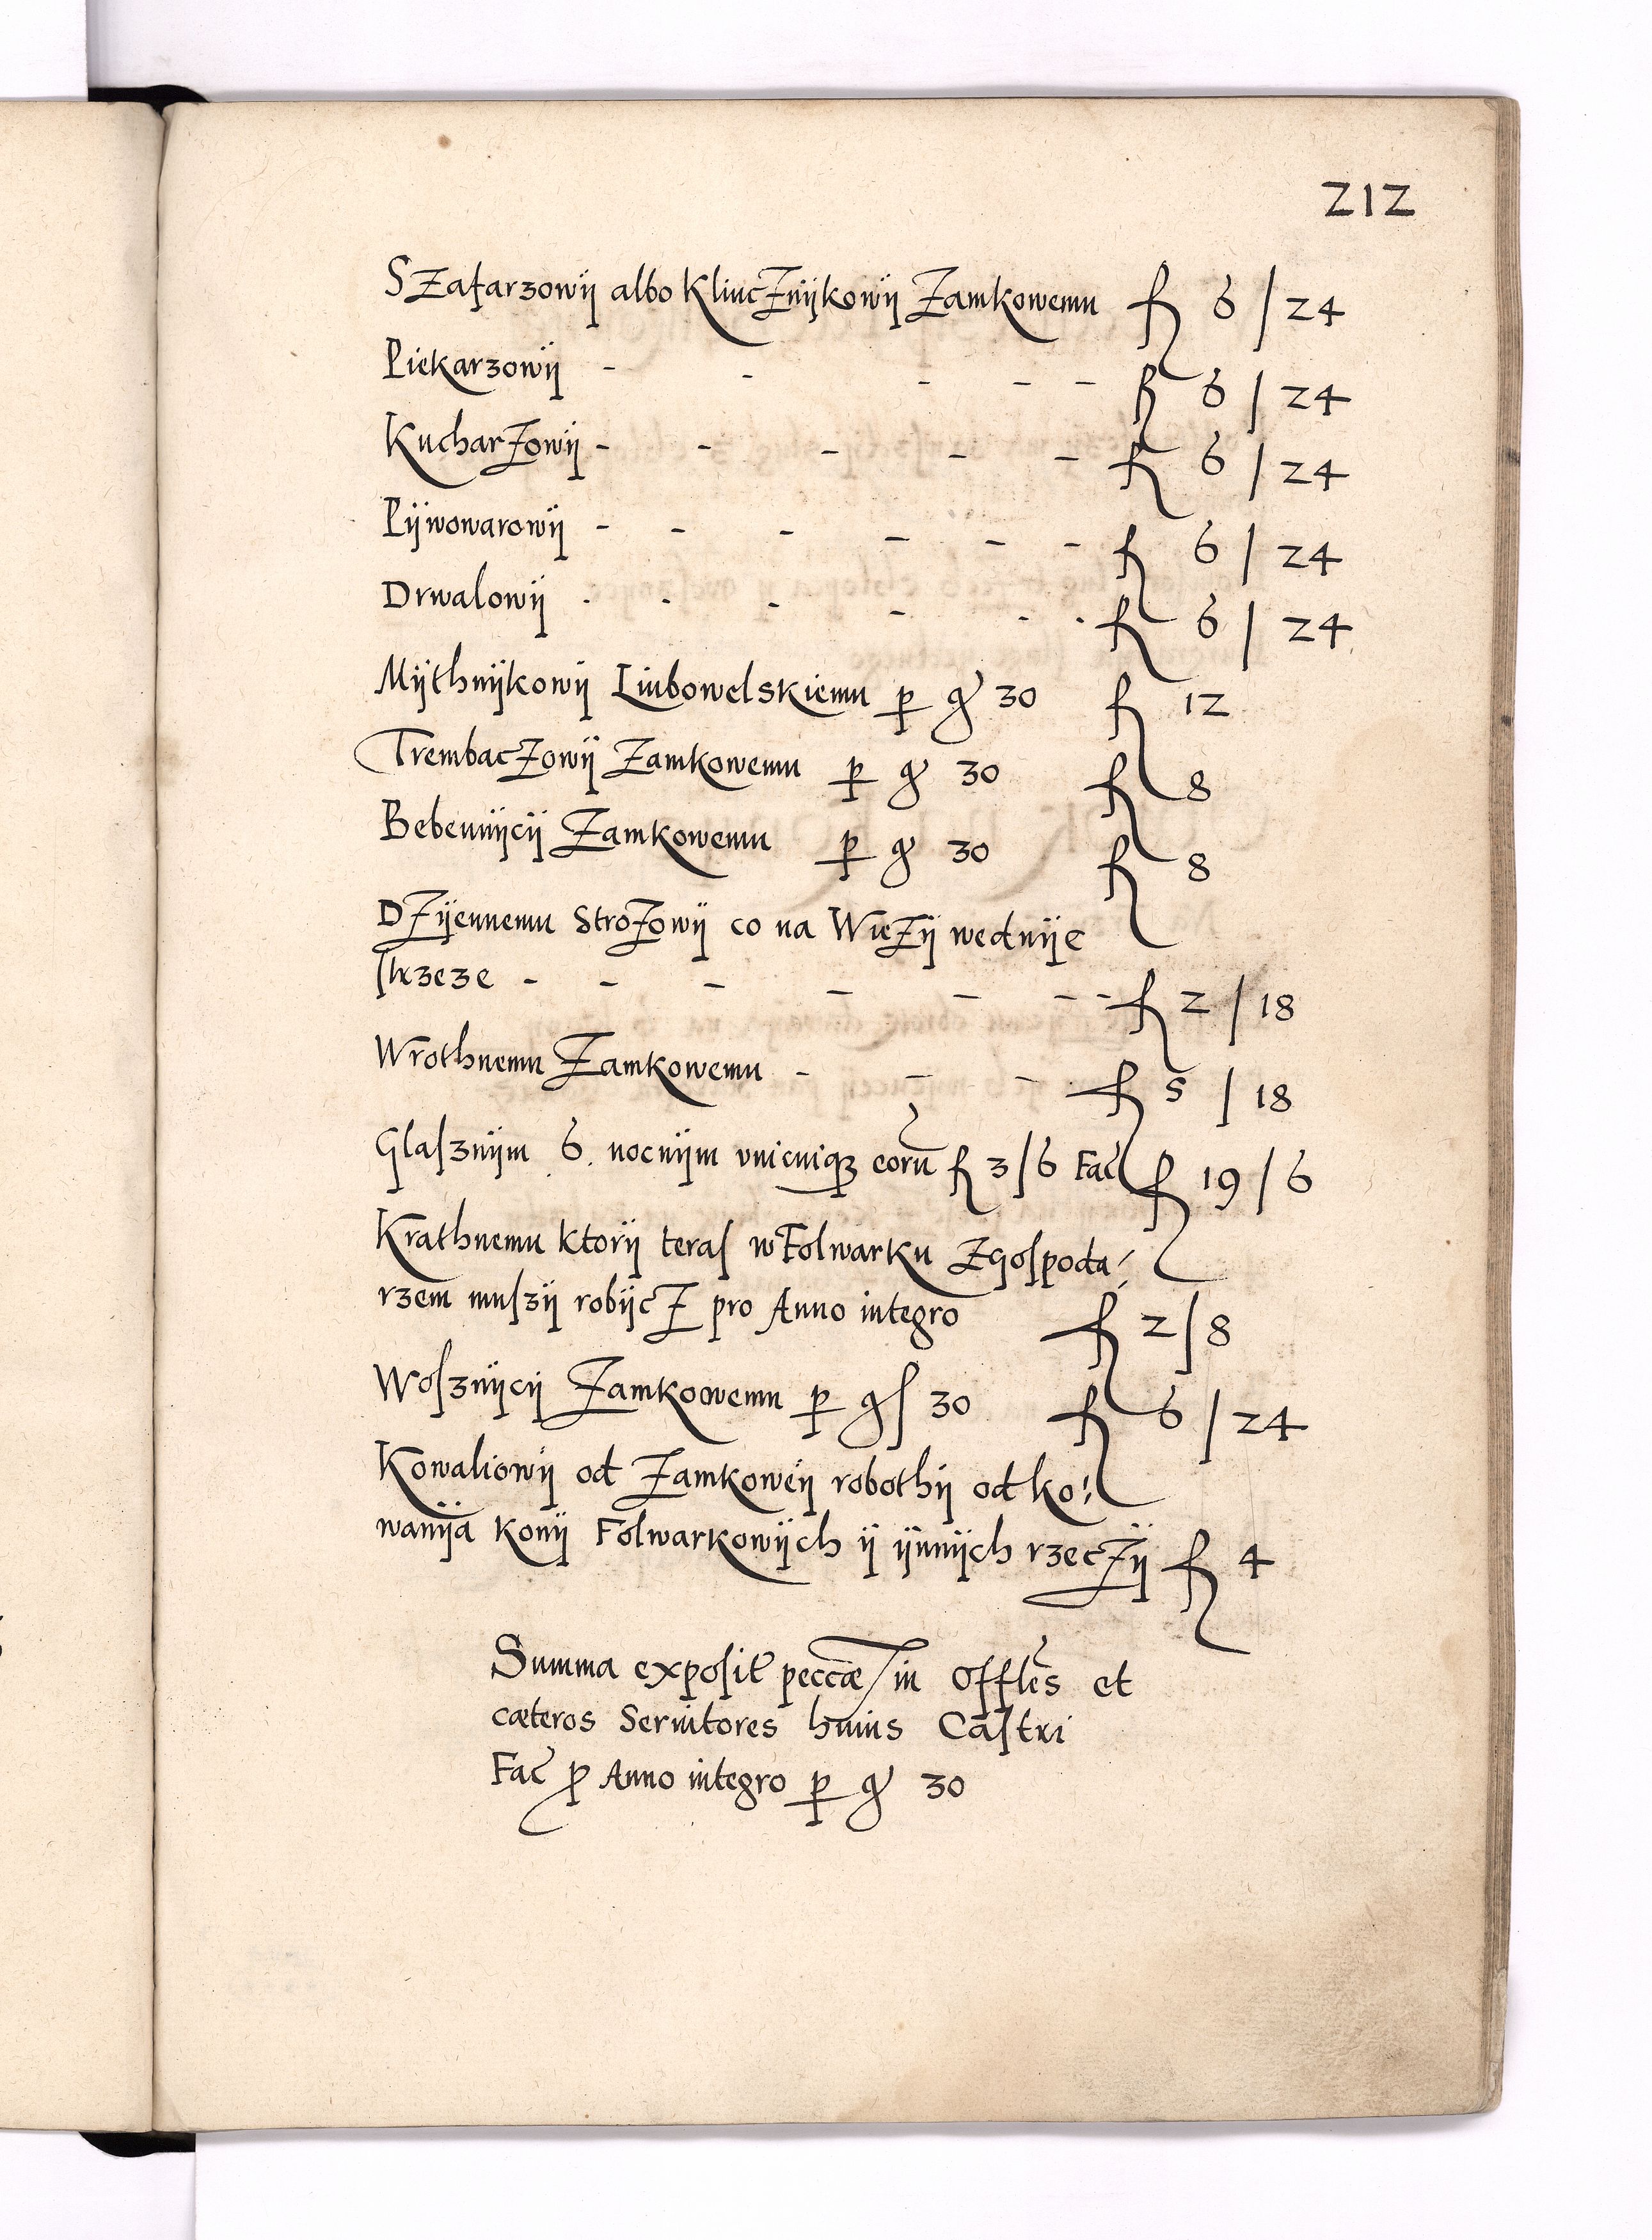 212
SZafarzowÿ albo KliucZnÿkowÿ Zamkowemu fl 6 / 24
Piekarzowÿ - - - - - fl 6 / 24
KucharZowÿ - - - - - fl 6 / 24
Pÿwowarowÿ - - - - - - fl 6 / 24
Drwalowÿ - - - - - - fl 6 / 24
Mÿthnÿkowÿ Liubowelskiemu p gr 30 fl 12
TrembacZowÿ Zamkowemu p gr 30 fl 8
Bebennÿcÿ Zamkowemu p gr 30 fl 8
DZÿennemu StroZowÿ co na WieZÿ wednÿe
ſtrzeze - - - - - - - fl 2 / 18
Wrothnemu Zamkowemu - - - fl 5 / 18
Glaſznÿm 6. nocnÿm vnicuiqꝫ eorū fl 3/6 Fac̄ fl 19 / 6
Krathnemu ktorÿ teraſ w Folwarku Zgoſpoda⸗
rzem muſzÿ robÿcZ pro Anno integro fl 2/8
Woſznÿcÿ Zamkowemu p gſ 30 fl 6 / 24
Kowaliowÿ od Zamkoweÿ robothÿ od ko⸗
wanÿa konÿ Folwarkowÿch ÿ ÿnnÿch rzecZÿ fl 4
Summa expoſit peccæ in Offles et
cæteros Seruitores huius Caſtri
Fac̄ ꝓ Anno integro p gr 30